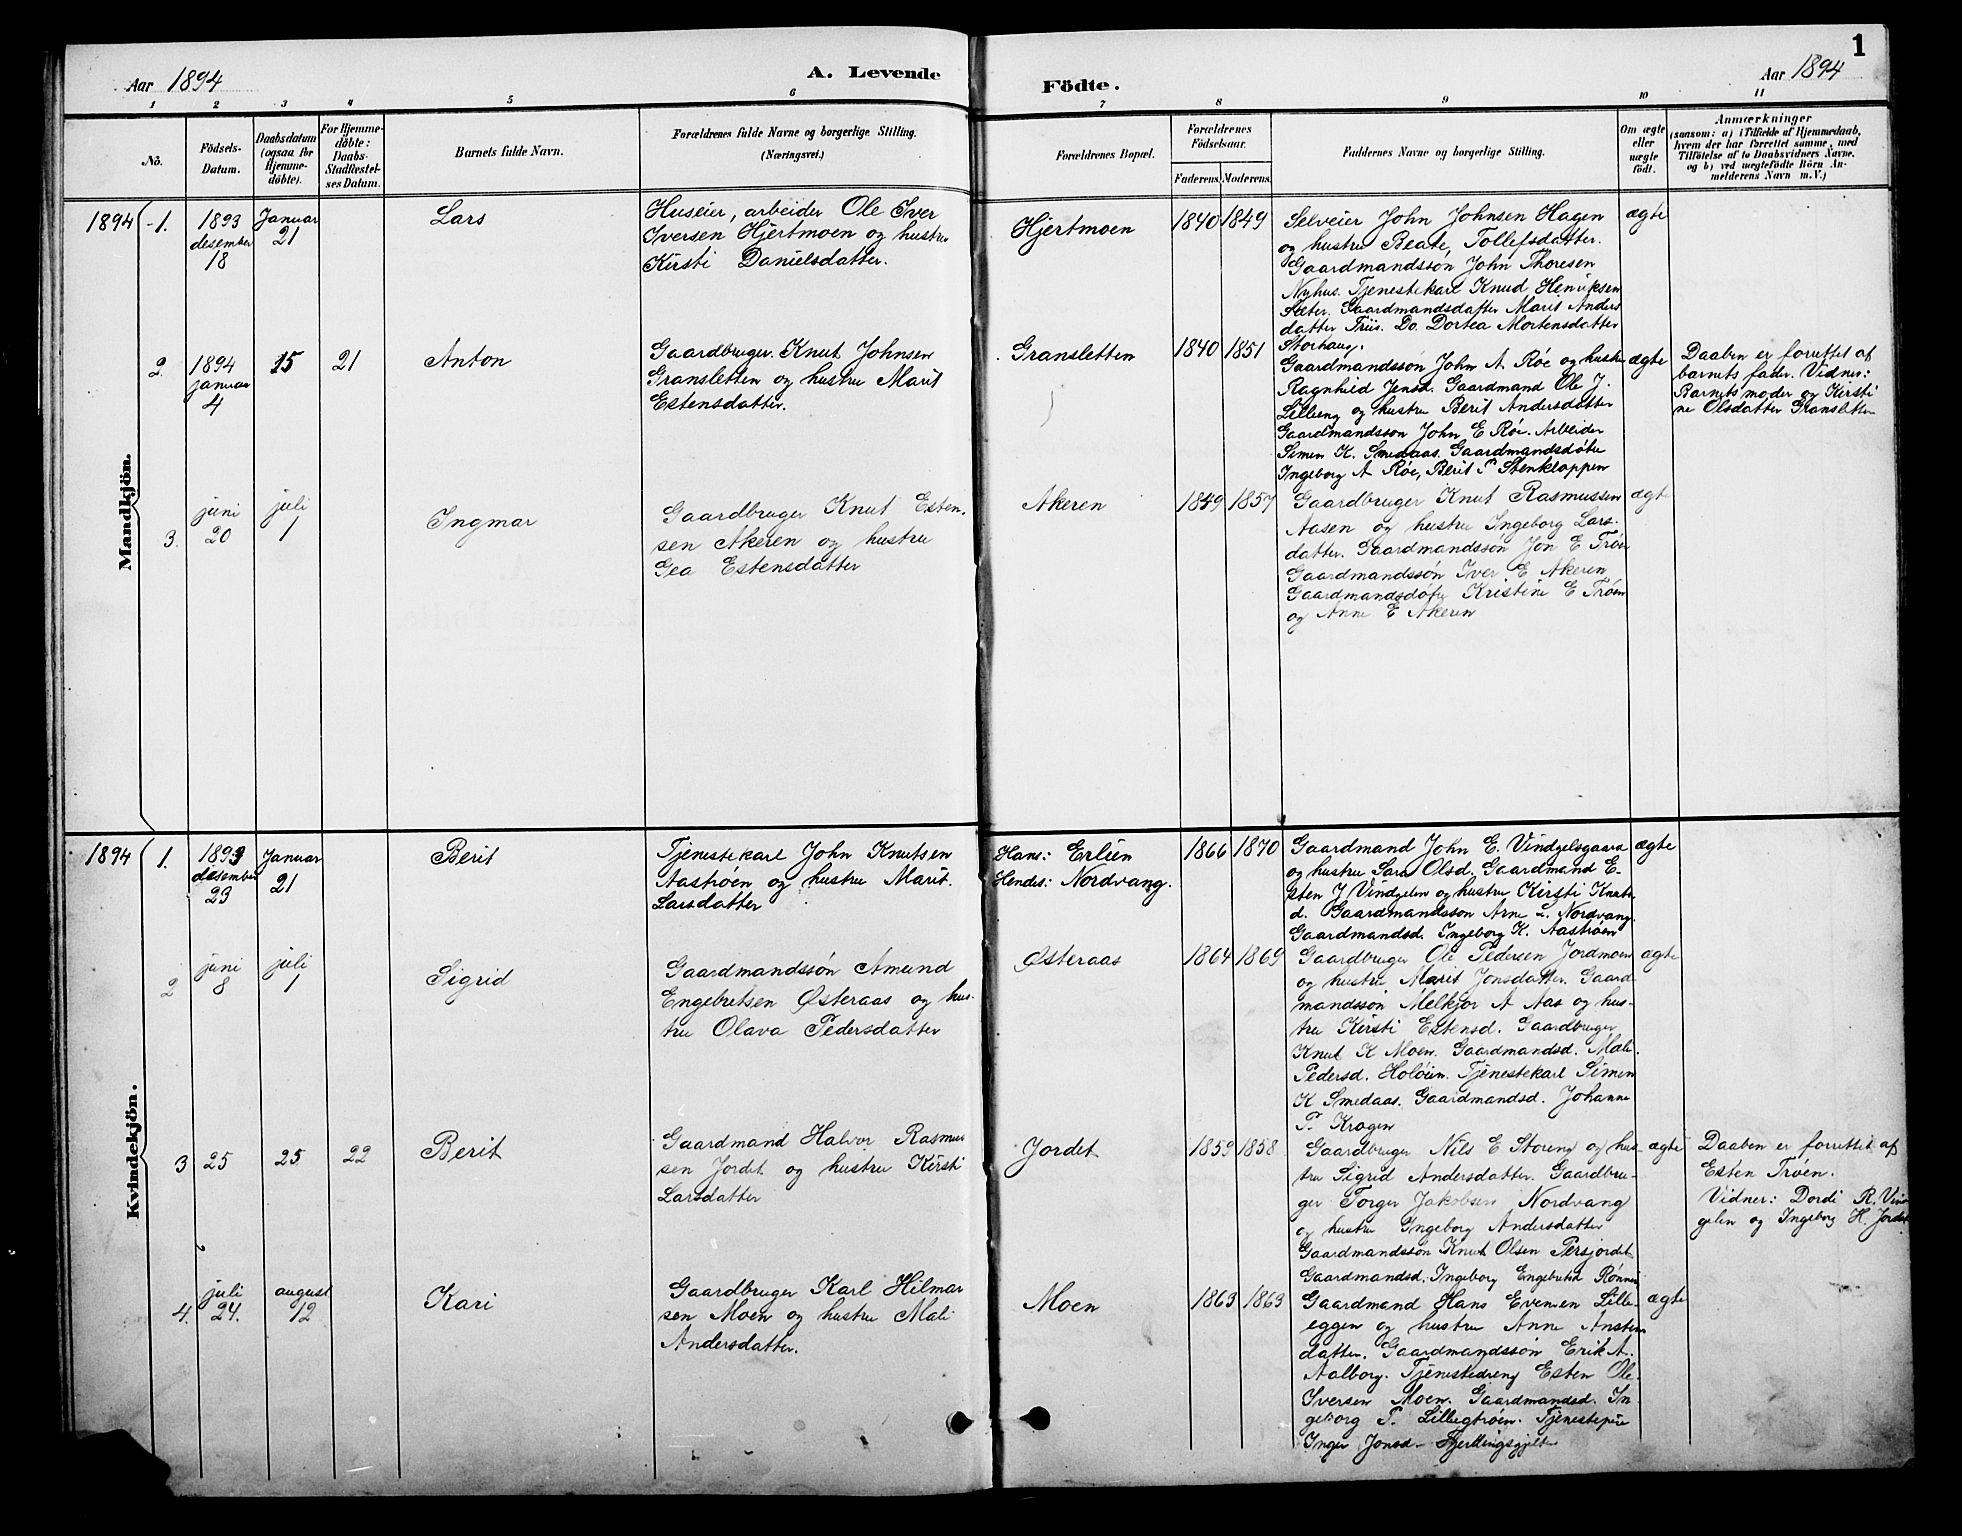 1
Aar 1894
A. Levende
Födte.
Aar 1894
1
2
3
4
5
6
7
8
9
10
11
No.
Födsels-
Datum.
Daabsdatum
(ogsaa for
Hjemme-
döbte).
For Hjemme-
döbte:
Daabs-
Stadfestel-
ses Datum.
Barnets fulde Navn.
Forældrenes fulde Navne og borgerlige Stilling.
(Næringsvei.)
Forældrenes Bopæl.
Forældrenes
Födselsaar.
Faderens.
Moderens.
Faddernes Navne og borgerlige Stilling.
Om ægte
eller
uægte
födt.
Anmærkninger
(saasom: a) i Tilfælde af Hjemmedaab,
hvem der har forrettet samme, med
Tilföielse af to Daabsvidners Navne.
og b) ved uægtefödte Börn An-
melderens Navn m.V.)
Mandkjön.
1894
1.
1893
desember
18
Januar
21
Lars
Huseier, arbeider Ole Iver
Iversen Hjertmoen og hustru
Kirsti Danielsdatter.
Hjertmoen
1840
1849
Selveier John Johnsen Hagen
og hustru Beate Tollefsdatter.
Gaardmandssøn John Thoresen
Nyhus. Tjenestekarl Knud Henriksen
Sæter. Gaardmandsdatter Marit Anders
datter Triis. Do. Dortea Mortensdatter
Storhaug.
ægte
2.
1894
januar
4
15
21
Anton
Gaardbruger Knut Johnsen
Gransletten og hustru Marit
Estensdatter.
Gransletten
1840
1851
Gaardmandssøn John A. Røe og hustru
Ragnhild Jensd. Gaardmand Ole J.
Lilleeng og hustru Berit Andersdatter
Gaardmandssøn John E Røe. Arbeider
Simen K. Smedaas. Gaardmandsdøtre
Ingeborg A Røe, Berit P Stenkloppen
ægte
Daaben er forrettet af
barnets fader. Vidner:
Barnets moder og Kirsti
ne Olsdatter Gransletten
3.
juni
20
juli
1
Ingmar
Gaardbruger Knut Esten-
sen Akeren og hustru
Gea Estensdatter
Akeren
1849
1857
Gaardbruger Knut Rasmussen
Aasen og hustru Ingeborg Lars-
datter. Gaardmandssøn Jon E Trøen
Gaardmandssøn Iver E Akeren
Gaardmandsdøtre Kristine E Trøen
og Anne E Akeren
ægte
Kvindekjön.
1894
1.
1893
desember
23
Januar
21
Berit
Tjenestekarl John Knutsen
Aastrøen og hustru Marit
Larsdatter
Hans: Erlien
Hendes: Nordvang.
1866
1870
Gaardmand John E. Vindgelsgaard
og hustru Sara Olsd. Gaardmand E-
sten J Vindgelen og hustru Kirsti Knuts
d. Gaardmandssøn Arne L. Nordvang.
Gaardmandsd. Ingeborg K. Aastrøen
ægte
2
juni
8
juli
1
Sigrid
Gaardmandssøn Amund
Engebretsen Østeraas og hus-
tru Olava Pedersdatter
Østeraas
1864
1869
Gaardbruger Ole Pedersen Jordmoen
og hustru Marit Jonsdatter. Gaard-
mandssøn Melkjor A Aas og hus-
tru Kirsti Estensd. Gaardbruger
Knut K Moen. Gaardmandsd. Mali
Pedersd. Holøien. Tjenestekarl Simen
K Smedaas. Gaardmandsd. Johanne
P. Krogen
ægte
3
25
25
22
Berit
Gaardmand Halvor Rasmus
sen Jordet og hustru Kirsti
Larsdatter
Jordet
1859
1858
Gaardbruger Nils E Storeng og hus-
tru Sigrid Andersdatter. Gaardbru-
ger Torger Jakobsen Nordvang
og hustru Ingeborg Andersdatter
Gaardmandssøn Knut Olsen Persjordet
Gaardmandsd. Ingeborg Engebretsd Rønnin
ægte
Daaben er forrettet af
Esten Trøen.
Vidner: Dordi R. Vin
gelen og Ingeborg H. Jordet
4.
juli
24.
august
12
Kari
Gaardbruger Karl Hilmar
sen Moen og hustru Mali
Andersdatter.
Moen
1863
1863
Gaardmand Hans Evensen Lille-
eggen og hustru Anne Ansten
datter. Gaardmandssøn Erik A.
Aalborg. Tjenestedreng Esten Ole-
Iversen Moen. Gaardmandsd. In
geborg P. Lillegtrøen. Tjenestepie
Inger Jonsd
ægte